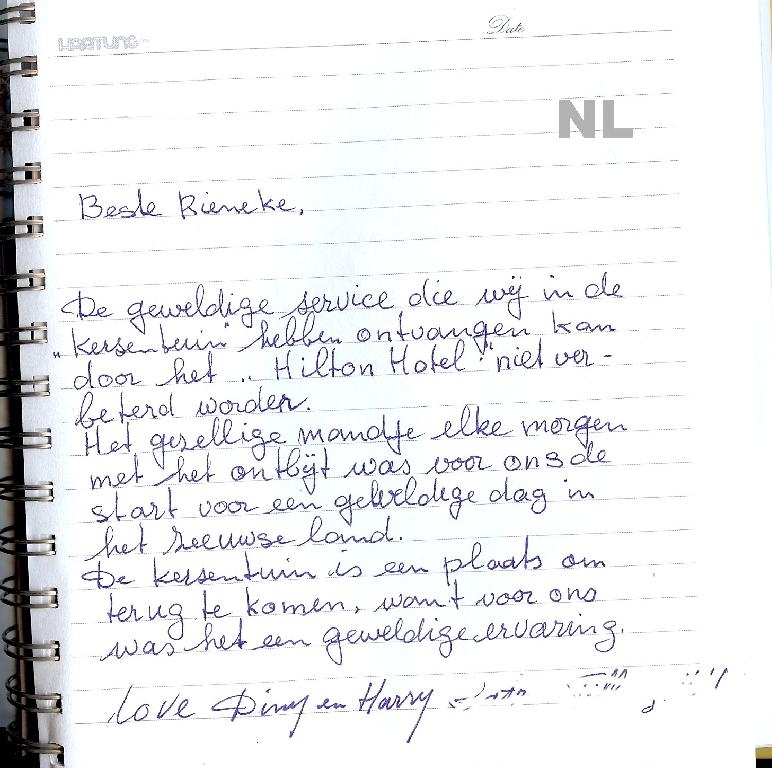 HARTUNG
Date
NL
Beste Rieneke,
De geweldige service die wij in de
"kersentuin" hebben ontvangen kan
door het "Hilton Hotel" niet ver-
beterd worden.
Het gezellige mandje elke morgen
met het ontbijt was voor ons de
start voor een geweldige dag in
het zeeuwse land.
De kersentuin is een plaats om
terug te komen, want voor ons
was het een geweldige ervaring.
Love Diny en Harry